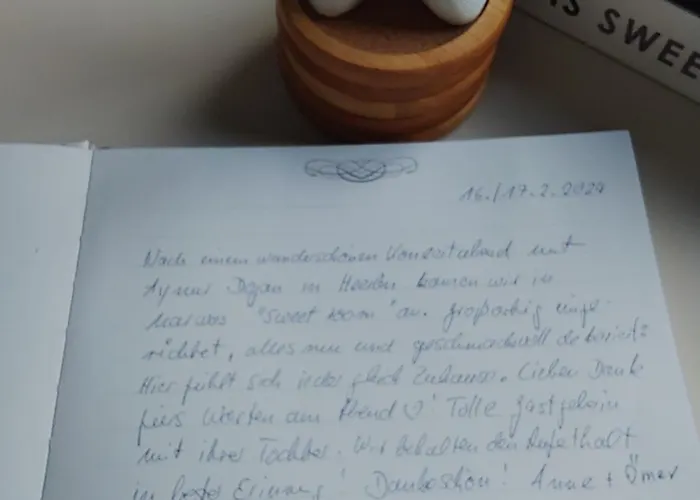 S SWEE
16./17.2.2024
Nach einem wunderschönen Konzertabend mit
Aynur Dogan in Heerlen kamen wir in
"Sweet room" an. großartig einge-
richtet, alles neu und geschmackvoll dekoriert.
Hier fühlt sich jeder gleich Zuhause. Lieben Dank
fürs Warten am Abend ♡! Tolle Gastgeberin
mit ihrer Tochter. Wir behalten den Aufenthalt
in bester Erinnerung! Dankeschön! Anne + Ömer